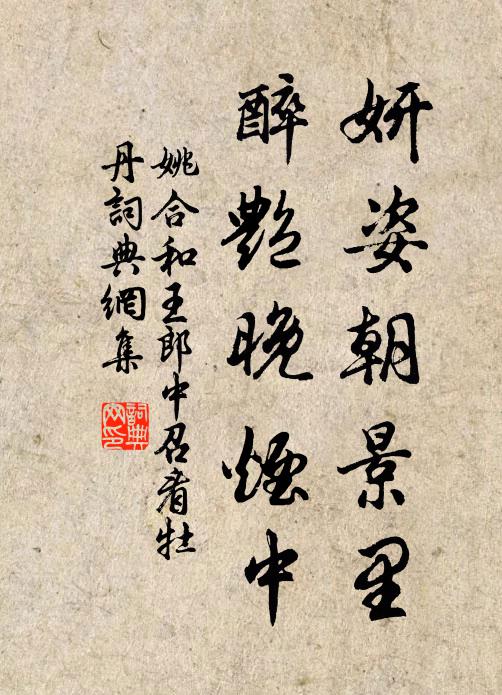 妍姿朝景里
醉艷晚煙中
姚合和王郎中召看牡
丹詞典網集
詞典網印